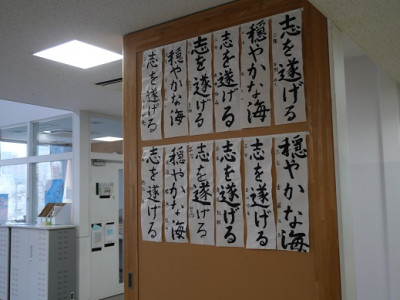 志を遂げる
穏やかな海
志を遂げる
志を遂げる
穏やかな海
志を遂げる
穏やかな海
志を遂げる
志を遂げる
志を遂げる
穏やかな海
志を遂げる